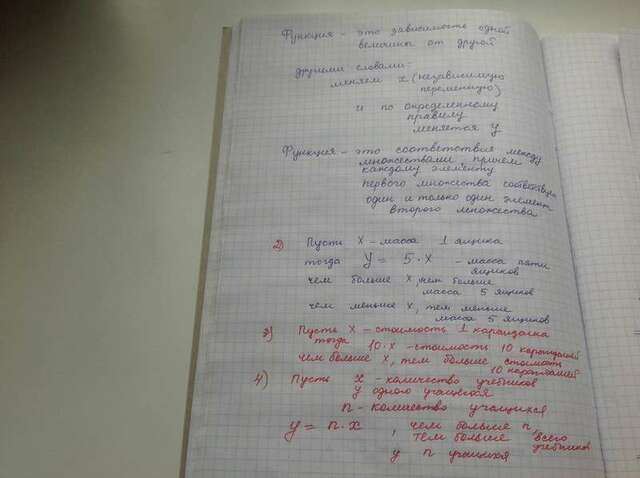 Функция - это зависимость одной
величины от другой
другими словами:
меняем x (независимую
переменную)
и по определенному
правилу
меняется y
Функция - это соответствие между
множествами, причем
каждому элементу
первого множества соответствует
один и только один элемент
второго множества
2) Пусть x - масса 1 ящика
тогда y = 5·x - масса пяти
ящиков
чем больше x, тем больше
масса 5 ящиков
чем меньше x, тем меньше
масса 5 ящиков
3) Пусть x - стоимость 1 карандаша
тогда 10·x - стоимость 10 карандашей
чем больше x, тем больше стоимость
10 карандашей
4) Пусть x - количество учебников
у одного учащегося
n - количество учащихся
y = n·x, чем больше n,
тем больше всего
учебников
у n учащихся